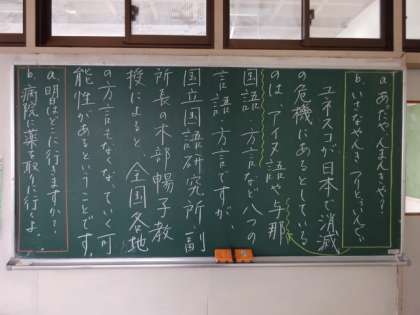 a. あだやんまんきゃ？
ユネスコが日本で消滅
の危機にあるとしている
のは、アイヌ語や与那
国語・方言など八つの
言語・方言ですが、
国立国語研究所副
所長の木部暢子教
授によると、全国各地
の方言でもなくなっていく可
能性があるということです。
a. 明日はどこに行きますか？
b. 病院に薬を取りに行くよ。